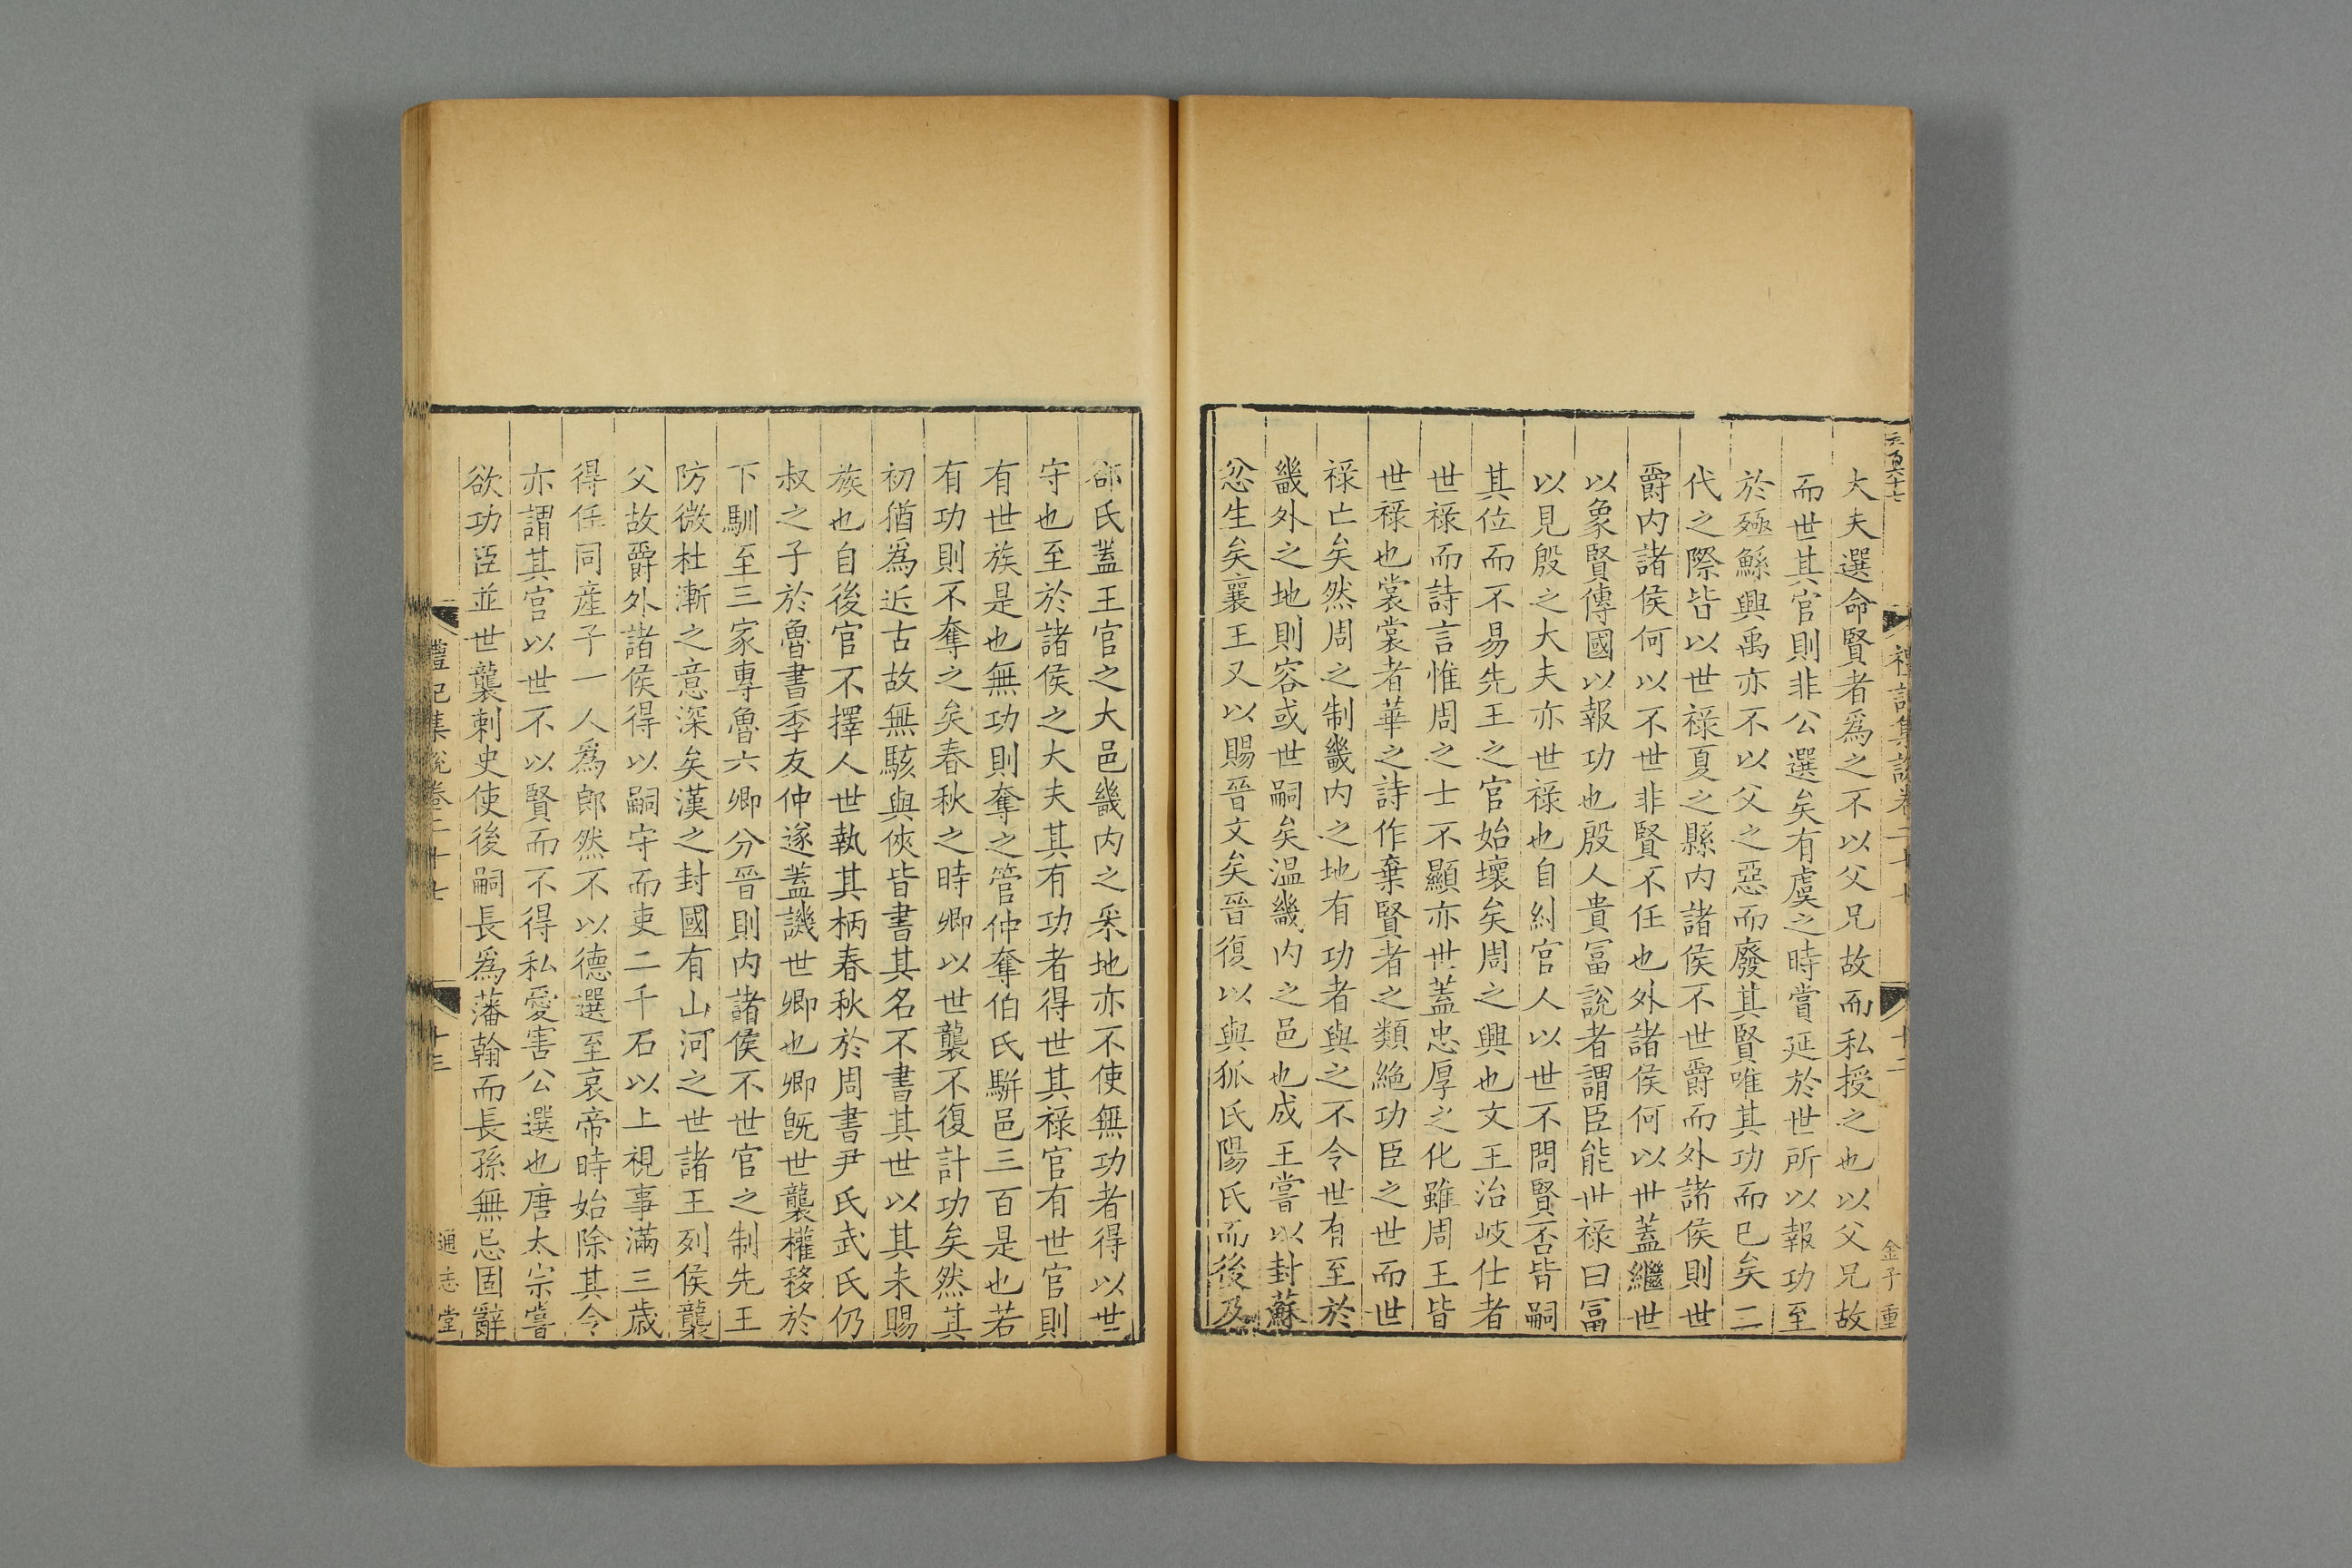 五百六十七
禮記集説卷二十七
十二
金子重
大夫選命賢者爲之不以父兄故而私授之也以父兄故
而世其官則非公選矣有虞之時賞延於世所以報功至
於殛鯀興禹亦不以父之惡而廢其賢唯其功而已矣二
代之際皆以世禄夏之縣内諸侯不世爵而外諸侯則世
爵内諸侯何以不世非賢不任也外諸侯何以世蓋繼世
以象賢傳國以報功也殷人貴冨說者謂臣能世禄曰冨
以見殷之大夫亦世禄也自紂官人以世不問賢否皆嗣
其位而不易先王之官始壞矣周之興也文王治岐仕者
世禄而詩言惟周之士不顯亦世蓋忠厚之化雖周王皆
世禄也裳裳者華之詩作棄賢者之類絶功臣之世而世
禄亡矣然周之制畿内之地有功者與之不令世有至於
畿外之地則容或世嗣矣温畿内之邑也成王嘗以封蘇
忿生矣襄王又以賜晉文矣晉復以與狐氏陽氏而後及
郤氏蓋王官之大邑畿内之采地亦不使無功者得以世
守也至於諸侯之大夫其有功者得世其禄官有世官則
有世族是也無功則奪之管仲奪伯氏駢邑三百是也若
有功則不奪之矣春秋之時卿以世襲不復計功矣然其
初猶爲近古故無駭與俠皆書其名不書其世以其未賜
族也自後官不擇人世執其柄春秋於周書尹氏武氏仍
叔之子於魯書季友仲遂蓋譏世卿也卿旣世襲權移於
下馴至三家專魯六卿分晉則内諸侯不世官之制先王
防微杜漸之意深矣漢之封國有山河之世諸王列侯襲
父故爵外諸侯得以嗣守而吏二千石以上視事滿三歳
得任同産子一人爲郎然不以德選至哀帝時始除其令
亦謂其官以世不以賢而不得私愛害公選也唐太宗嘗
欲功臣並世襲刺史使後嗣長爲藩翰而長孫無忌固辭
禮記集説卷二十七
十三
通志堂